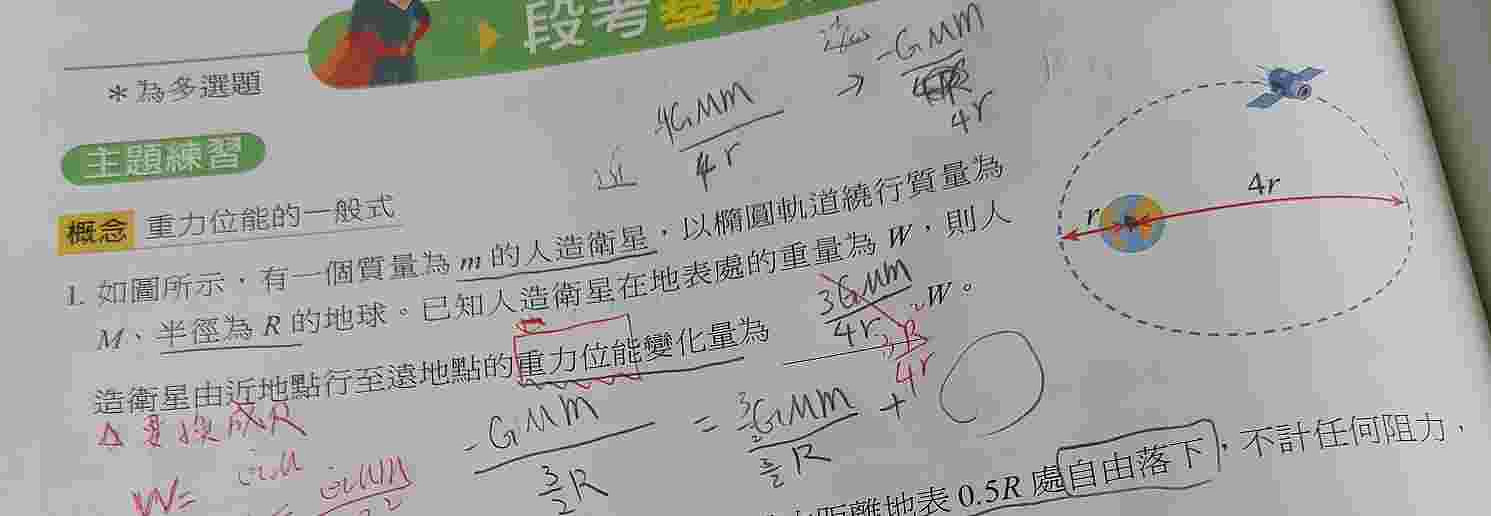 段考基礎
＊為多選題
主題練習
概念 重力位能的一般式
遠 → -GMm / 4r
近 4GMm / 4r
r
4r
1. 如圖所示，有一個質量為 m 的人造衛星，以橢圓軌道繞行質量為
M、半徑為 R 的地球。已知人造衛星在地表處的重量為 W，則人
造衛星由近地點行至遠地點的重力位能變化量為 ______ W。
3GMm / 4r
4r
-GMm / 3/2 R = GMm / 3/2 R +
W=
距離地表 0.5R 處自由落下，不計任何阻力，